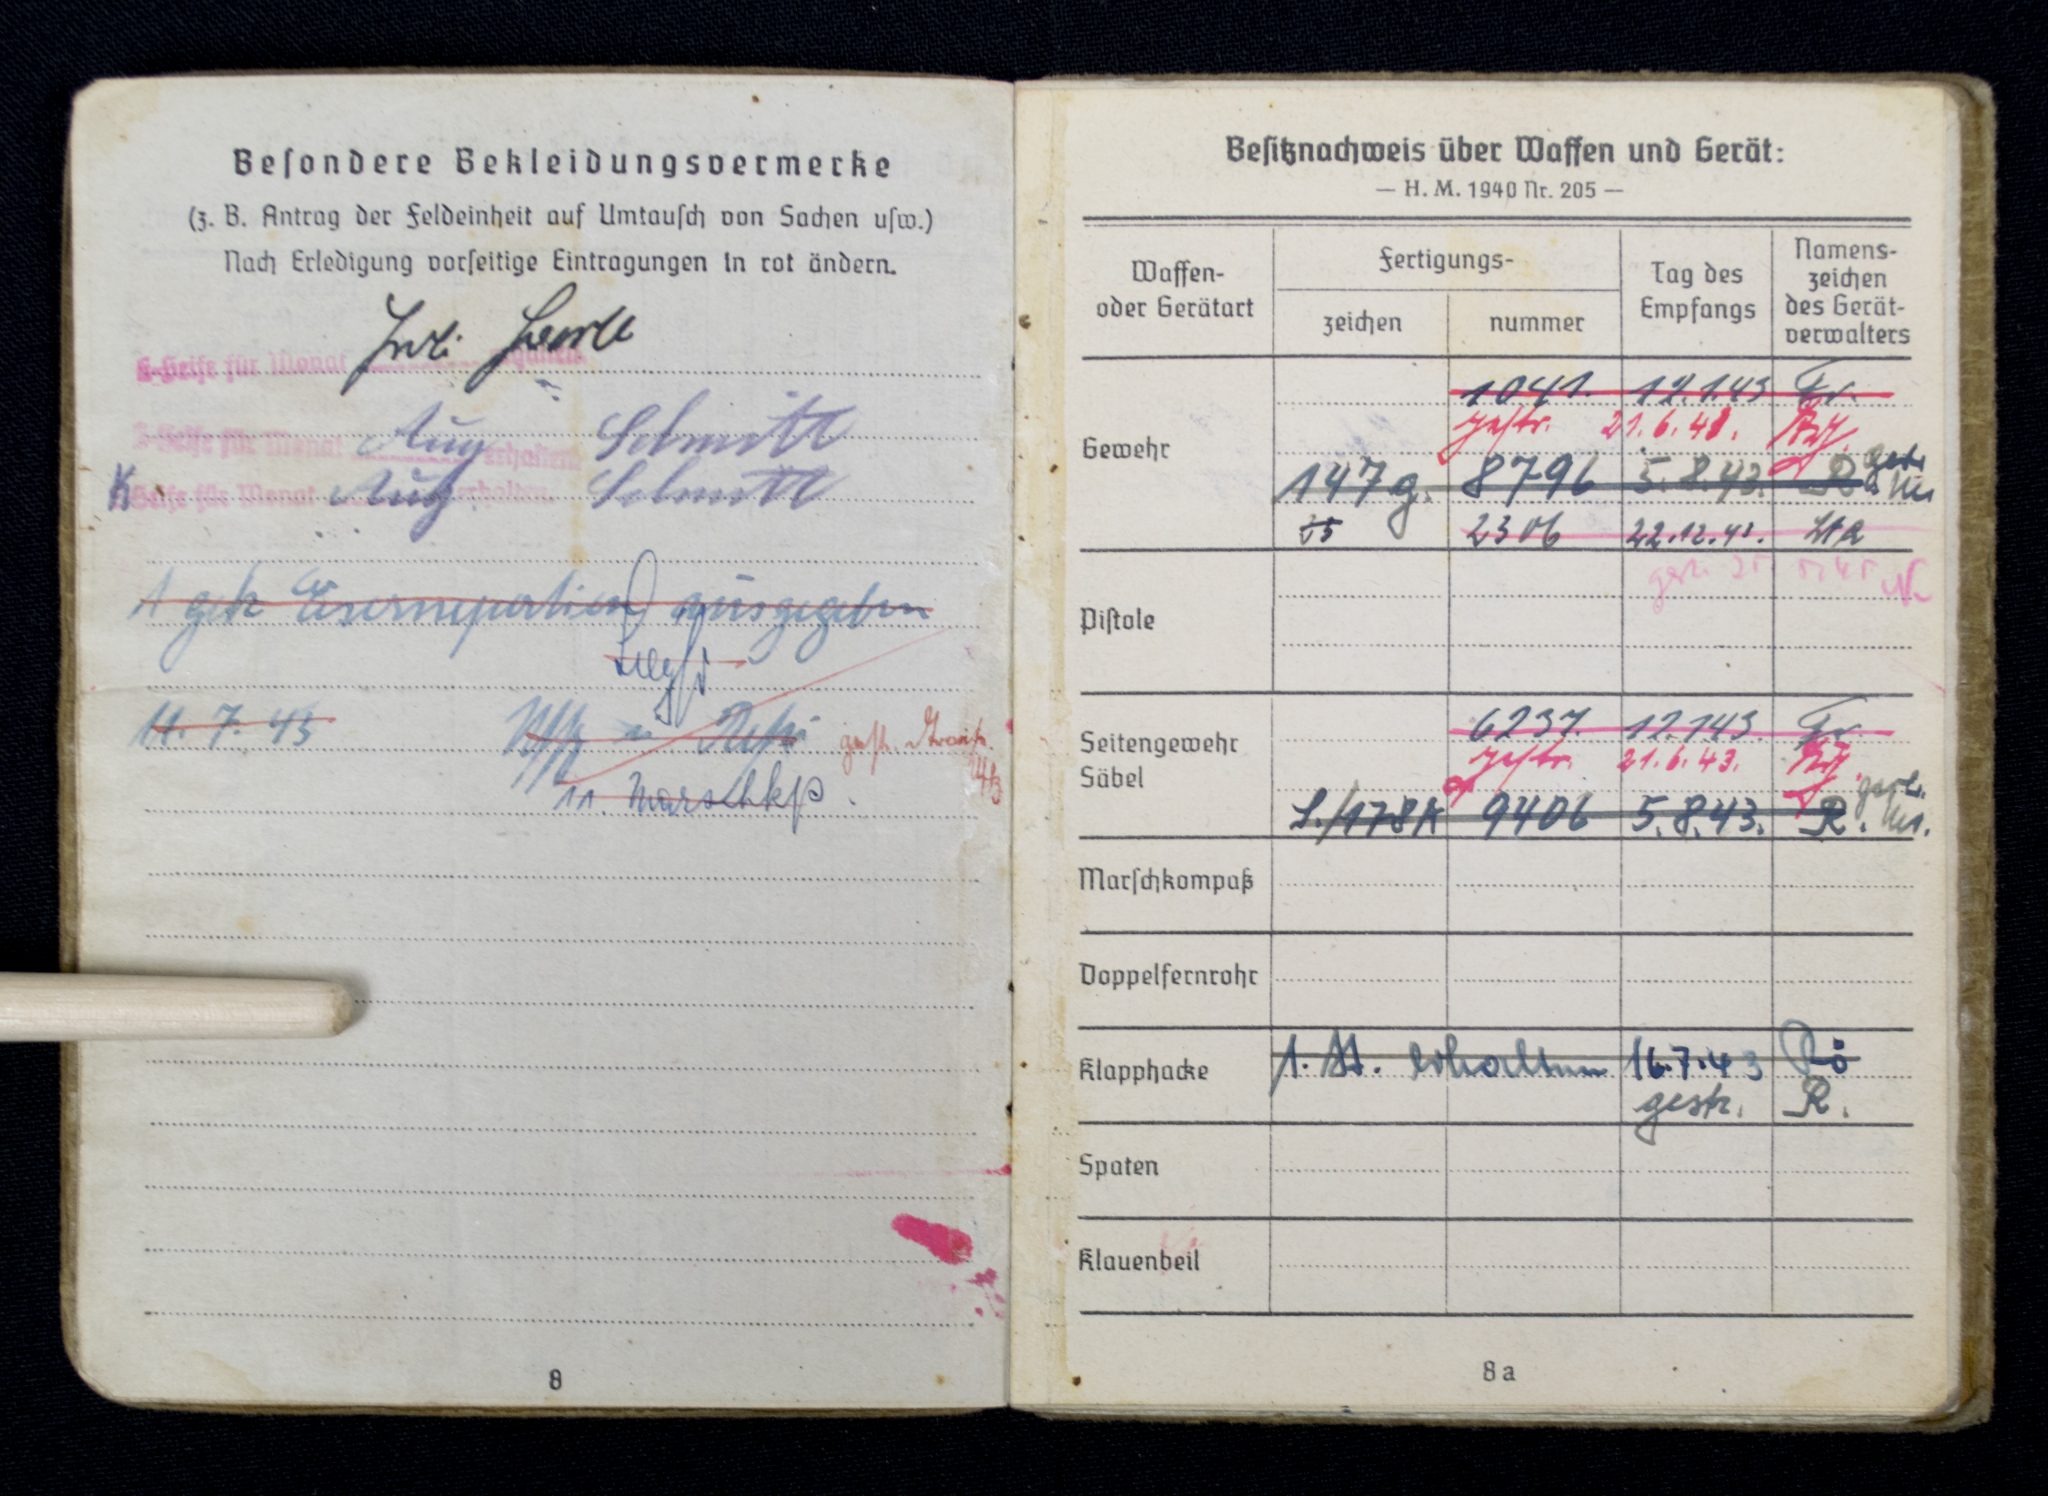 Besondere Bekleidungsvermerke
(z. B. Antrag der Feldeinheit auf Umtausch von Sachen usw.)
Nach Erledigung vorseitige Eintragungen in rot ändern.
Juli
K-Seife für Monat erhalten.
Z-Seife für Monat Aug erhalten. Schmitt
K Seife für Monat Aug erhalten. Schmitt
1 gek. Eiserneportion ausgegeben
11. 7. 43
gestr.
11. Marschkp.
8
Besitznachweis über Waffen und Gerät:
— H. M. 1940 Nr. 205 —
Waffen- oder Gerätart
Fertigungs-
zeichen
nummer
Tag des Empfangs
Namens-zeichen des Gerät-verwalters
Gewehr
1041. 12.1.43 Fr.
gestr. 21.6.43.
147g. 8796 5.8.43. R gestr.
2306 22.12.43.
Pistole
gestr.
Seitengewehr
Säbel
6237. 12.1.43. Fr
gestr. 21.6.43.
S./178K 9406 5.8.43. R. gestr.
Marschkompaß
Doppelfernrohr
Klapphacke
1. St. erhalten 16.7.43 Rö
gestr. R.
Spaten
Klauenbeil
8a